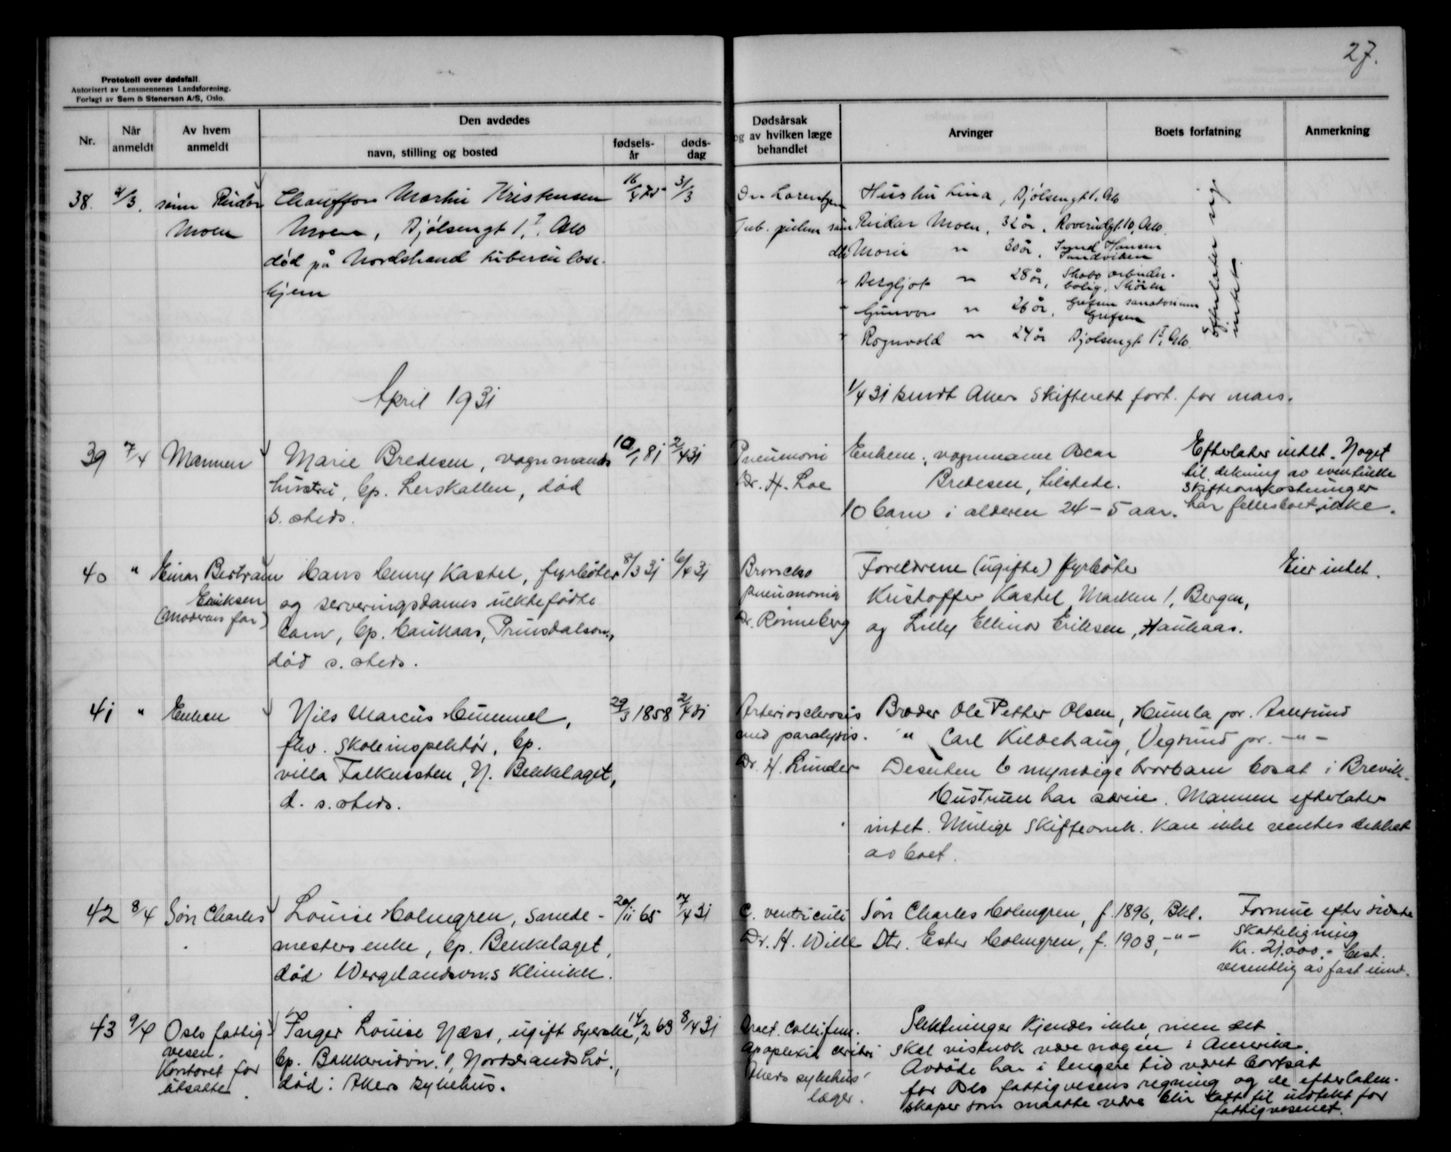 27.
Protokoll over dødsfall.
Autorisert av Lensmennenes Landsforening.
Forlagt av Sem & Stenersen A/S, Oslo.
Nr.
Når anmeldt
Av hvem anmeldt
Den avdødes
navn, stilling og bosted
fødsels-år
døds-dag
Dødsårsak
og av hvilken læge behandlet
Arvinger
Boets forfatning
Anmerkning
38.
sønn Reidar
Moen
Chauffør Martin Kristensen
Moen, Djølsengt 1, Oslo
død på Nordstrand tuberkulose-
hjem
31/3
Dr. Lorentzen
Tub. pulm
Hustru Lina, Djølsengt 1, Oslo
søn Reidar Moen, 32 år,
dtr. 30 år, Hansen
Sandviken
" 28 år,
bolig, Skøien
" Gunvor " 26 år, Grefsen sanatorium
Grefsen
" Ragnvald " 24 år Djølsengt 1, Oslo
efterlater sig
intet.
April 1931
1/4 31 sendt Akers Skifterett fort. for mars.
39
7/4
Mannen
Marie Bredesen, vognmands
hustru, bp. Lerskallen, død
s. steds.
10/1 81
2/4 31
Pneumoni
Dr. H. Loe
Enkem., vognmann Oscar
Bredesen, Lilstede.
10 barn i alderen 24 - 5 aar.
Efterlater intet. Noget
til dekning av eventuelle
skifteomkostninger
har fellesboet ikke.
40
"
Einar Bertram
Eriksen
(moderens far)
Hans Henry Kastel, fyrbøter
og serveringsdames uektefødte
barn, bp. Hauhaas, Prinsdalsvn.,
død s. steds.
8/3 31
6/4 31
Broncho
pneumonia
Dr. Rønneberg
Foreldrene (ugifte) fyrbøter
Kristoffer Kastel, Marken 1, Bergen,
og Lilly Ellinor Eriksen, Hauhaas.
Eier intet.
41
"
Enken
Nils Marcus Hummel,
fhv. skoleinspektør, bp.
villa Falkensten, N. Bekkelaget,
d. s. steds.
29/3 1858
2/4 31
Arteriosclerosis
med paralysis.
Dr. H. Lunder
Brøder Ole Petter Olsen, Humla pr. Aalesund
" Carl Kildehaug, Vegsund pr. - " -
Desuten 6 myndige brorbarn bosat i Brevik.
Hustruen har særeie. Mannen efterlater
intet. Mulige skifteomk. kan ikke ventes dekket
av boet.
42
8/4
Søn Charles
Louise Holmgren,
mesters enke, bp. Bekkelaget,
død Wergelandsvn.s Klinikk.
20/11 65
7/4 31
C. ventriculi
Dr. H. Wille
Søn Charles Holmgren, f. 1896, Bkl.
Dtr. Ester Holmgren, f. 1903, - " -
Formue efter sidste
skatteligning
Kr. 21.000.- Best.
vesentlig av fast eiend.
43
9/4
Oslo fattig-
vesen.
Kontoret for
utsatte.
Inger Louise Næss, ugift syerske,
bp. Bakkeridvn. 1, Nordstrandshø.,
død: Akers sykehus.
14/2 63
8/4 31
Apoplexia cerebri
Akers sykehus'
læger.
Slektninger kjendes ikke, men det
skal visstnok være nogen i Amerika.
Avdøde har i lengere tid været bortsat
for Oslo fattigvesens regning og de efterladen-
skaper som maatte være blir tatt til inntekt for
fattigvesenet.